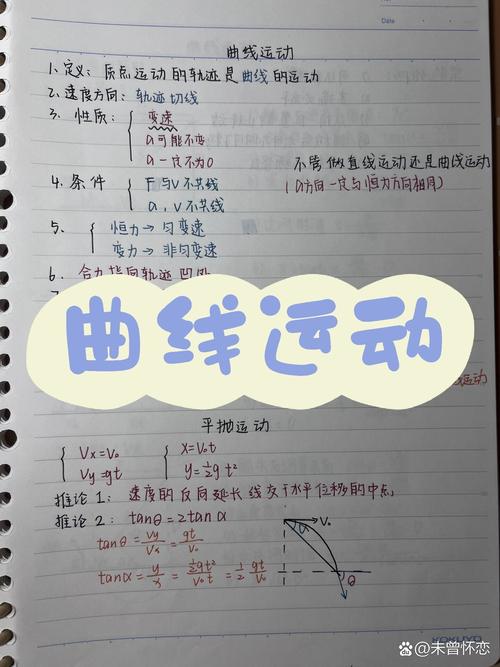 Date
曲线运动
1、定义：质点运动的轨迹是曲线的运动
2、速度方向：轨迹切线
3、性质：
变速
a可能不变
a一定不为0
不管做直线运动还是曲线运动
（a方向一定与恒力方向相同）
4、条件
F与V不共线
a，V不共线
5、
恒力→匀变速
变力→非匀变速
6、合力指向轨迹凹
曲线运动
运动
平抛运动
Vx=V₀
Vy=gt
x=V₀t
y=½gt²
推论1：速度的反向延长线交于水平位移的中点
推论2：tanθ=2tanα
tanθ=Vy/Vx=gt/V₀
tanα=y/x=½gt²/V₀t=½ gt/V₀
V₀
α
θ
KOKUYO
@未曾怀恋